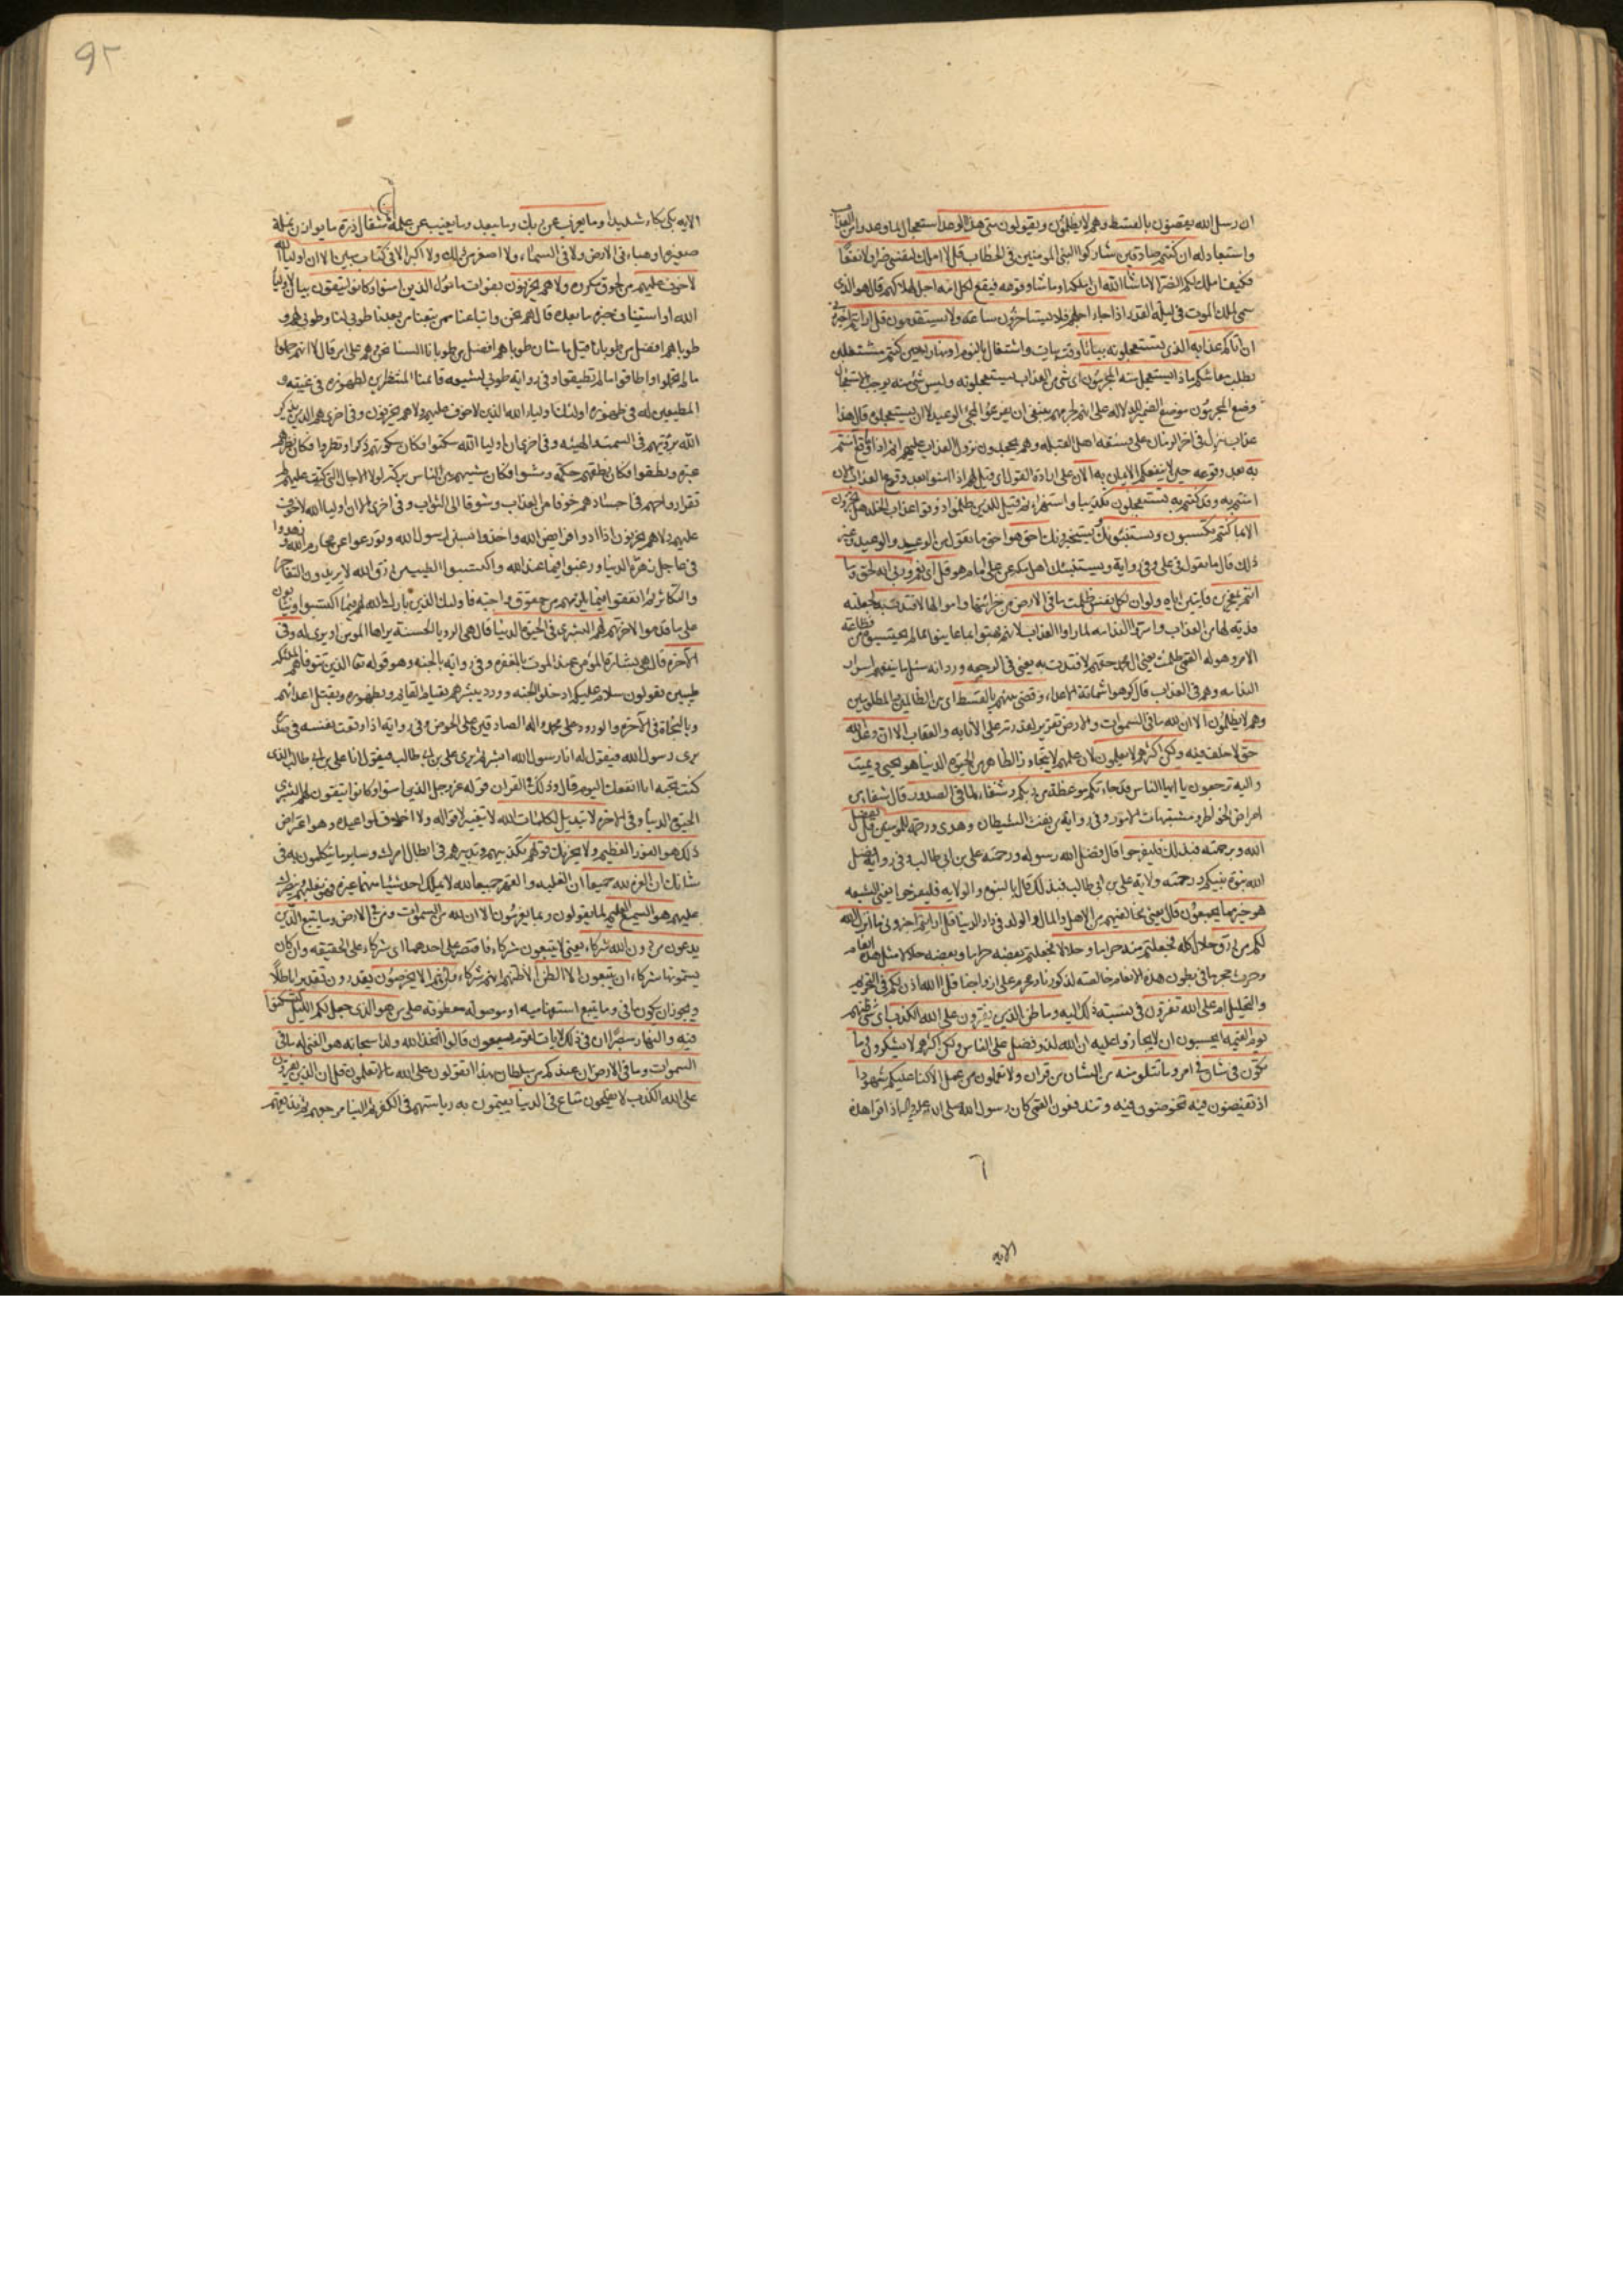 ان رسل الله يقضون بالقسط وهم لا يظلمون ويقولون متى هذا الوعد استعجال لما وعدوا من العذاب
واستبعاد له ان كنتم صادقين شاركوا النبي المومنين في الخطاب قل لا املك لنفسي ضرا ولا نفعا
فكيف املك لكم الضر الا ما شاء الله ان املكه او ما شاء وقوعه فيقع لكل امة اجل لهلاكهم قال هو الذي
سمى لملك الموت في ليلة القدر اذا جاء اجلهم فلا يستاخرون ساعة ولا يستقدمون قل ارايتم اخبروني
ان اتاكم عذابه الذي تستعجلونه بياتا وقت بيات واشتغال بالنوم او نهارا حين كنتم مشتغلين
بطلب معاشكم ماذا يستعجل منه المجرمون اى شي من العذاب يستعجلونه وليس شي منه يوجب الاستعجال
وضع المجرمون موضع الضمير للدلالة على انهم لجرمهم ينبغي ان يفزعوا لمجئ الوعيد لا ان يستعجلوه قال هذا
عذاب ينزل في اخر الزمان على فسقة اهل القبلة وهم يجحدون نزول العذاب عليهم اثم اذا ما وقع امنتم
به بعد وقوعه حين لا ينفعكم الايمان به الان على ارادة القول اى قيل لهم اذا امنوا بعد وقوع العذاب الان
امنتم به وقد كنتم به تستعجلون تكذيبا واستهزاء ثم قيل للذين ظلموا ذوقوا عذاب الخلد هل تجزون
الا بما كنتم تكسبون ويستنبئونك يستخبرونك احق هو احق ما تقول من الوعد والوعيد وغير
ذلك قال ما تقول في على وفي رواية ويستنبئك اهل مكة عن على امام هو قل اى وربي انه لحق وما
انتم بمعجزين فايتين اياه ولو ان لكل نفس ظلمت ما في الارض من خزائنها واموالها لافتدت به لجعلته
فدية لها من العذاب واسروا الندامة لما راوا العذاب لانهم بهتوا بما عاينوا مما لم يحتسبوه من فظاعة
الامر وهوله القمي ظلمت يعني ال محمد حقهم لافتدت به يعني في الرجعة ورد انه سئل ما ينفعهم اسرار
الندامة وهم في العذاب قال كرهوا شماتة الاعداء وقضي بينهم بالقسط اى بين الظالمين والمظلومين
وهم لا يظلمون الا ان لله ما في السموات والارض تقرير لقدرته على الاثابة والعقاب الا ان وعد الله
حق لا خلف فيه ولكن اكثرهم لا يعلمون لان علمهم لا يتجاوز الظاهر من الحيوة الدنيا هو يحيي ويميت
واليه ترجعون يا ايها الناس قد جاءتكم موعظة من ربكم وشفاء لما في الصدور قال شفاء من
امراض الخواطر ومشتبهات الامور وفي رواية من نفث الشيطان وهدى ورحمة للمومنين قل بفضل
الله وبرحمته فبذلك فليفرحوا قال فضل الله رسوله ورحمته على بن ابي طالب وفي رواية فضل
الله نبوة نبيكم ورحمته ولاية على بن ابي طالب فبذلك قال بالنبوة والولاية فليفرحوا يعني الشيعة
هو خير مما يجمعون قال يعني مخالفيهم من الاهل والمال والولد في دار الدنيا قل ارايتم اخبروني ما انزل الله
لكم من رزق حلال كله فجعلتم منه حراما وحلالا فجعلتم بعضه حراما وبعضه حلالا مثل هذه انعام
وحرث حجر ما في بطون هذه الانعام خالصة لذكورنا ومحرم على ازواجنا قل الله اذن لكم في التحريم
والتحليل ام على الله تفترون في نسبة ذلك اليه وما ظن الذين يفترون على الله الكذب اى شي ظنهم
يوم القيمة ايحسبون ان لا يجازوا عليه ان الله لذو فضل على الناس ولكن اكثرهم لا يشكرون وما
تكون في شان في امر وما تتلو منه من الشان من قران ولا تعملون من عمل الا كنا عليكم شهودا
اذ تفيضون فيه تخوضون فيه وتندفعون القمي كان رسول الله صلى الله عليه واله اذا قرا هذه
٦
الايه
٩٢
الايه بكى بكاء شديدا وما يعزب عن ربك وما يبعد وما يغيب عن علمه من مثقال ذرة ما يوازن نملة
صغيرة او هباء في الارض ولا في السماء ولا اصغر من ذلك ولا اكبر الا في كتاب مبين الا ان اولياء الله
لا خوف عليهم من لحوق مكروه ولا هم يحزنون بفوات مامول الذين امنوا وكانوا يتقون بيان لاولياء
الله او استيناف خبره ما بعده قال هم نحن واتباعنا ممن تبعنا من بعدنا طوبى لنا وطوبى لهم و
طوباهم افضل من طوبانا قيل ما شان طوباهم افضل من طوبانا السنا نحن وهم على امر قال لا انهم حملوا
ما لم تحملوا واطاقوا ما لم تطيقوا وفي رواية طوبى لشيعة قائمنا المنتظرين لظهوره في غيبته و
المطيعين له في ظهوره اولئك اولياء الله الذين لا خوف عليهم ولا هم يحزنون وفي اخرى هم الذين يذكر
الله برؤيتهم في السمت والهيئة وفي اخرى ان اولياء الله سكتوا فكان سكوتهم ذكرا ونظروا فكان نظرهم
عبرة ونطقوا فكان نطقهم حكمة ومشوا فكان مشيهم بين الناس بركة لولا الاجال التي كتبت عليهم لم
تقر ارواحهم في اجسادهم خوفا من العذاب وشوقا الى الثواب وفي اخرى الا ان اولياء الله لا خوف
عليهم ولا هم يحزنون اذا ادوا فرايض الله واخذوا بسنن رسول الله وتورعوا عن محارم الله وزهدوا
في عاجل زهرة الدنيا ورغبوا فيما عند الله واكتسبوا الطيب من رزق الله لا يريدون التفاخر
والتكاثر ثم انفقوا فيما يلزمهم من حقوق واجبة فاولئك الذين بارك الله لهم فيما اكتسبوا ويثابون
على ما قدموا لاخرتهم لهم البشرى في الحيوة الدنيا قال هي الرؤيا الحسنة يراها المومن او يرى له وفي
الآخرة قال هي بشارة المؤمن عند الموت بالمغفرة وفي رواية بالجنة وهو قوله تعا الذين تتوفاهم الملئكة
طيبين يقولون سلام عليكم ادخلوا الجنة وورد يبشرهم بقيام القائم وبظهوره وبقتل اعدائهم
وبالنجاة في الآخرة والورود على محمد واله الصادقين على الحوض وفي رواية اذا وقعت نفسه في صدره
يرى رسول الله فيقول له انا رسول الله ابشر ثم يرى على بن ابى طالب فيقول انا على بن ابى طالب الذي
كنت تحبه انا انفعك اليوم قال وذلك في القران قوله عز وجل الذين امنوا وكانوا يتقون لهم البشرى
الحيوة الدنيا وفي الاخرة لا تبديل لكلمات الله لا تغيير لاقواله ولا اخلاف لمواعيده وهو اعتراض
ذلك هو الفوز العظيم ولا يحزنك قولهم تكذيبهم وتدبيرهم في ابطال امرك وساير ما يتكلمون به في
شانك ان العزة لله جميعا ان الغلبة والقهر جميعا لله لا يملك احد شيئا منهما غيره فهو يغلبهم وينصرك
عليهم هو السميع العليم لما يقولون وبما يعزمون الا ان لله من في السموات ومن في الارض وما يتبع الذين
يدعون من دون الله شركاء يعني لا يتبعون شركاء فاقتصر على احدهما اى شركاء على الحقيقة وان كان
يسمونها شركاء ان يتبعون الا الظن الا ظنهم انهم شركاء وان هم الا يخرصون يقدرون تقديرا باطلا
ويجوز ان يكون ما في وما يتبع استفهامية او موصولة معطوفة على من هو الذي جعل لكم الليل لتسكنوا
فيه والنهار مبصرا ان في ذلك لايات لقوم يسمعون قالوا اتخذ الله ولدا سبحانه هو الغني له ما في
السموات وما في الارض ان عندكم من سلطان بهذا اتقولون على الله ما لا تعلمون قل ان الذين يفترون
على الله الكذب لا يفلحون متاع في الدنيا يقيمون به رياستهم في الكفر ثم الينا مرجعهم ثم نذيقهم